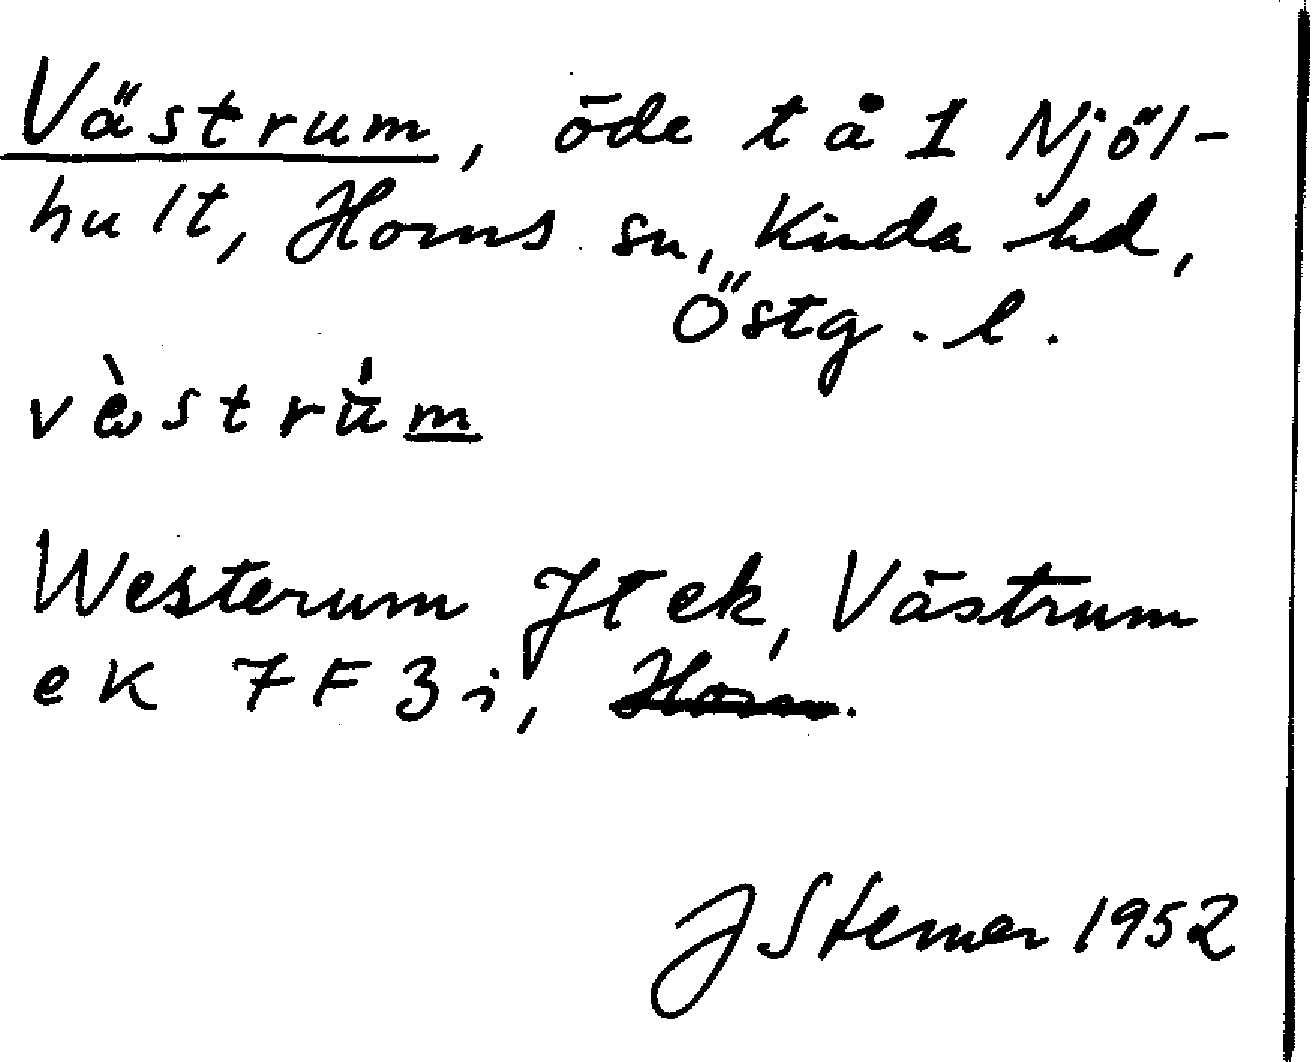 Västrum, öde t å 1 Njöl-
hult, Horns sn, Kinda hd,
Östg. l.
vèstrúm
Westerum JT ek, Västrum
ek 7F3i, Horn.
J Sterner 1952